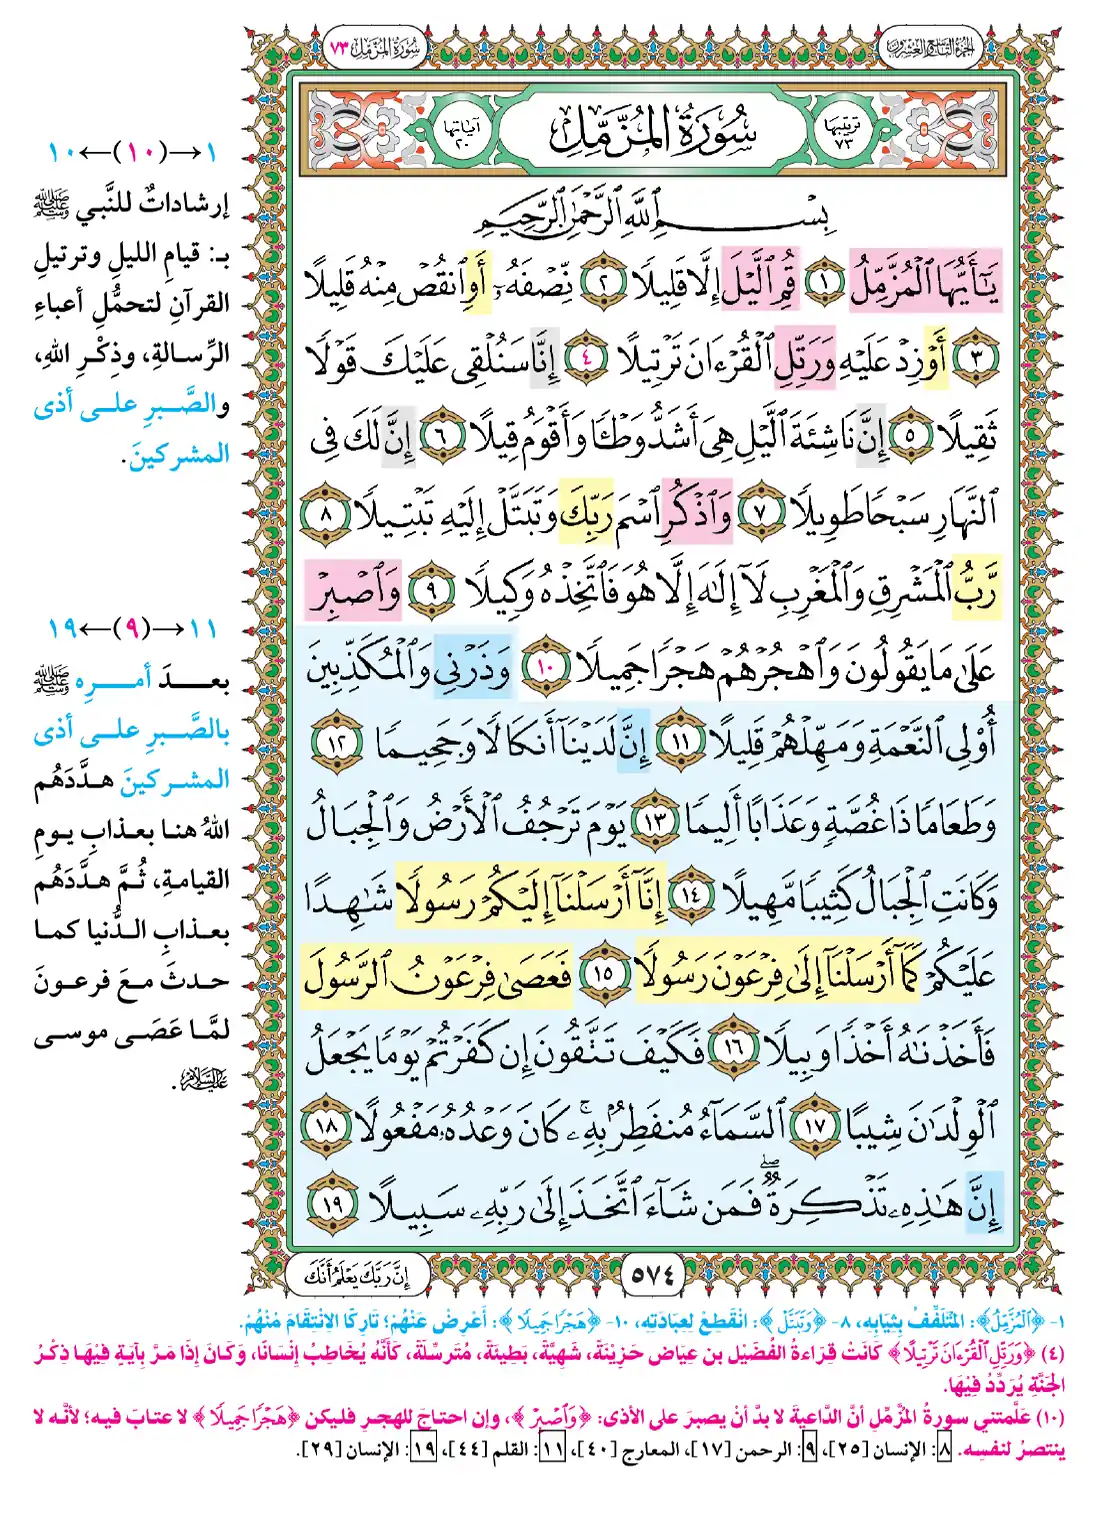 الجزء التاسع والعشرون
سُورَةُ المُزَّمِّل ٧٣
ترتيبها ٧٣
سُورَةُ المُزَّمِّلِ
آياتها ٢٠
بِسْمِ ٱللَّهِ ٱلرَّحْمَٰنِ ٱلرَّحِيمِ
يَٰٓأَيُّهَا ٱلْمُزَّمِّلُ ١ قُمِ ٱلَّيْلَ إِلَّا قَلِيلًا ٢ نِّصْفَهُۥٓ أَوِ ٱنقُصْ مِنْهُ قَلِيلًا
٣ أَوْ زِدْ عَلَيْهِ وَرَتِّلِ ٱلْقُرْءَانَ تَرْتِيلًا ٤ إِنَّا سَنُلْقِى عَلَيْكَ قَوْلًا
ثَقِيلًا ٥ إِنَّ نَاشِئَةَ ٱلَّيْلِ هِىَ أَشَدُّ وَطْـًٔا وَأَقْوَمُ قِيلًا ٦ إِنَّ لَكَ فِى
ٱلنَّهَارِ سَبْحًا طَوِيلًا ٧ وَٱذْكُرِ ٱسْمَ رَبِّكَ وَتَبَتَّلْ إِلَيْهِ تَبْتِيلًا ٨
رَّبُّ ٱلْمَشْرِقِ وَٱلْمَغْرِبِ لَآ إِلَٰهَ إِلَّا هُوَ فَٱتَّخِذْهُ وَكِيلًا ٩ وَٱصْبِرْ
عَلَىٰ مَا يَقُولُونَ وَٱهْجُرْهُمْ هَجْرًا جَمِيلًا ١٠ وَذَرْنِى وَٱلْمُكَذِّبِينَ
أُو۟لِى ٱلنَّعْمَةِ وَمَهِّلْهُمْ قَلِيلًا ١١ إِنَّ لَدَيْنَآ أَنكَالًا وَجَحِيمًا ١٢
وَطَعَامًا ذَا غُصَّةٍ وَعَذَابًا أَلِيمًا ١٣ يَوْمَ تَرْجُفُ ٱلْأَرْضُ وَٱلْجِبَالُ
وَكَانَتِ ٱلْجِبَالُ كَثِيبًا مَّهِيلًا ١٤ إِنَّآ أَرْسَلْنَآ إِلَيْكُمْ رَسُولًا شَٰهِدًا
عَلَيْكُمْ كَمَآ أَرْسَلْنَآ إِلَىٰ فِرْعَوْنَ رَسُولًا ١٥ فَعَصَىٰ فِرْعَوْنُ ٱلرَّسُولَ
فَأَخَذْنَٰهُ أَخْذًا وَبِيلًا ١٦ فَكَيْفَ تَتَّقُونَ إِن كَفَرْتُمْ يَوْمًا يَجْعَلُ
ٱلْوِلْدَٰنَ شِيبًا ١٧ ٱلسَّمَآءُ مُنفَطِرٌۢ بِهِۦ ۚ كَانَ وَعْدُهُۥ مَفْعُولًا ١٨
إِنَّ هَٰذِهِۦ تَذْكِرَةٌ ۖ فَمَن شَآءَ ٱتَّخَذَ إِلَىٰ رَبِّهِۦ سَبِيلًا ١٩
٥٧٤
إِنَّ رَبَّكَ يَعْلَمُ أَنَّكَ
١→(١٠)←١٠
إرشاداتٌ للنَّبي ﷺ
بـ: قيامِ الليلِ وترتيلِ
القرآنِ لتحمُّلِ أعباءِ
الرِّسالةِ، وذِكْرِ اللهِ،
والصَّبرِ على أذى
المشركينَ.
١١→(٩)←١٩
بعدَ أمرِه ﷺ
بالصَّبرِ على أذى
المشركينَ هدَّدَهُم
اللهُ هنا بعذابِ يومِ
القيامةِ، ثُمَّ هدَّدَهُم
بعذابِ الدُّنيا كما
حدثَ معَ فرعونَ
لمَّا عَصَى موسى
عليه السلام.
١- ﴿ٱلْمُزَّمِّلُ﴾: المُتَلَفِّفُ بِثِيَابِهِ، ٨- ﴿وَتَبَتَّلْ﴾: انْقَطِعْ لِعِبَادَتِهِ، ١٠- ﴿هَجْرًا جَمِيلًا﴾: أَعْرِضْ عَنْهُمْ؛ تَارِكًا الِانْتِقَامَ مِنْهُمْ.
(٤) ﴿وَرَتِّلِ ٱلْقُرْءَانَ تَرْتِيلًا﴾ كَانَتْ قِرَاءَةُ الفُضَيْلِ بنِ عِيَاضٍ حَزِينَةً، شَهِيَّةً، بَطِيئَةً، مُتَرسِّلَةً، كَأَنَّهُ يُخَاطِبُ إِنْسَانًا، وَكَانَ إِذَا مَرَّ بِآيَةٍ فِيْهَا ذِكْرُ
الجَنَّةِ يُرَدِّدُ فِيْهَا.
(١٠) عَلَّمتني سورةُ المُزَّمِّلِ أنَّ الدَّاعيةَ لا بدَّ أنْ يصبرَ على الأذى: ﴿وَٱصْبِرْ﴾، وإن احتاجَ للهجرِ فليكن ﴿هَجْرًا جَمِيلًا﴾ لا عتابَ فيه؛ لأنَّه لا
ينتصرُ لنفسِه. ٨: الإنسان [٢٥]، ٩: الرحمن [١٧]، المعارج [٤٠]، ١١: القلم [٤٤]، ١٩: الإنسان [٢٩].